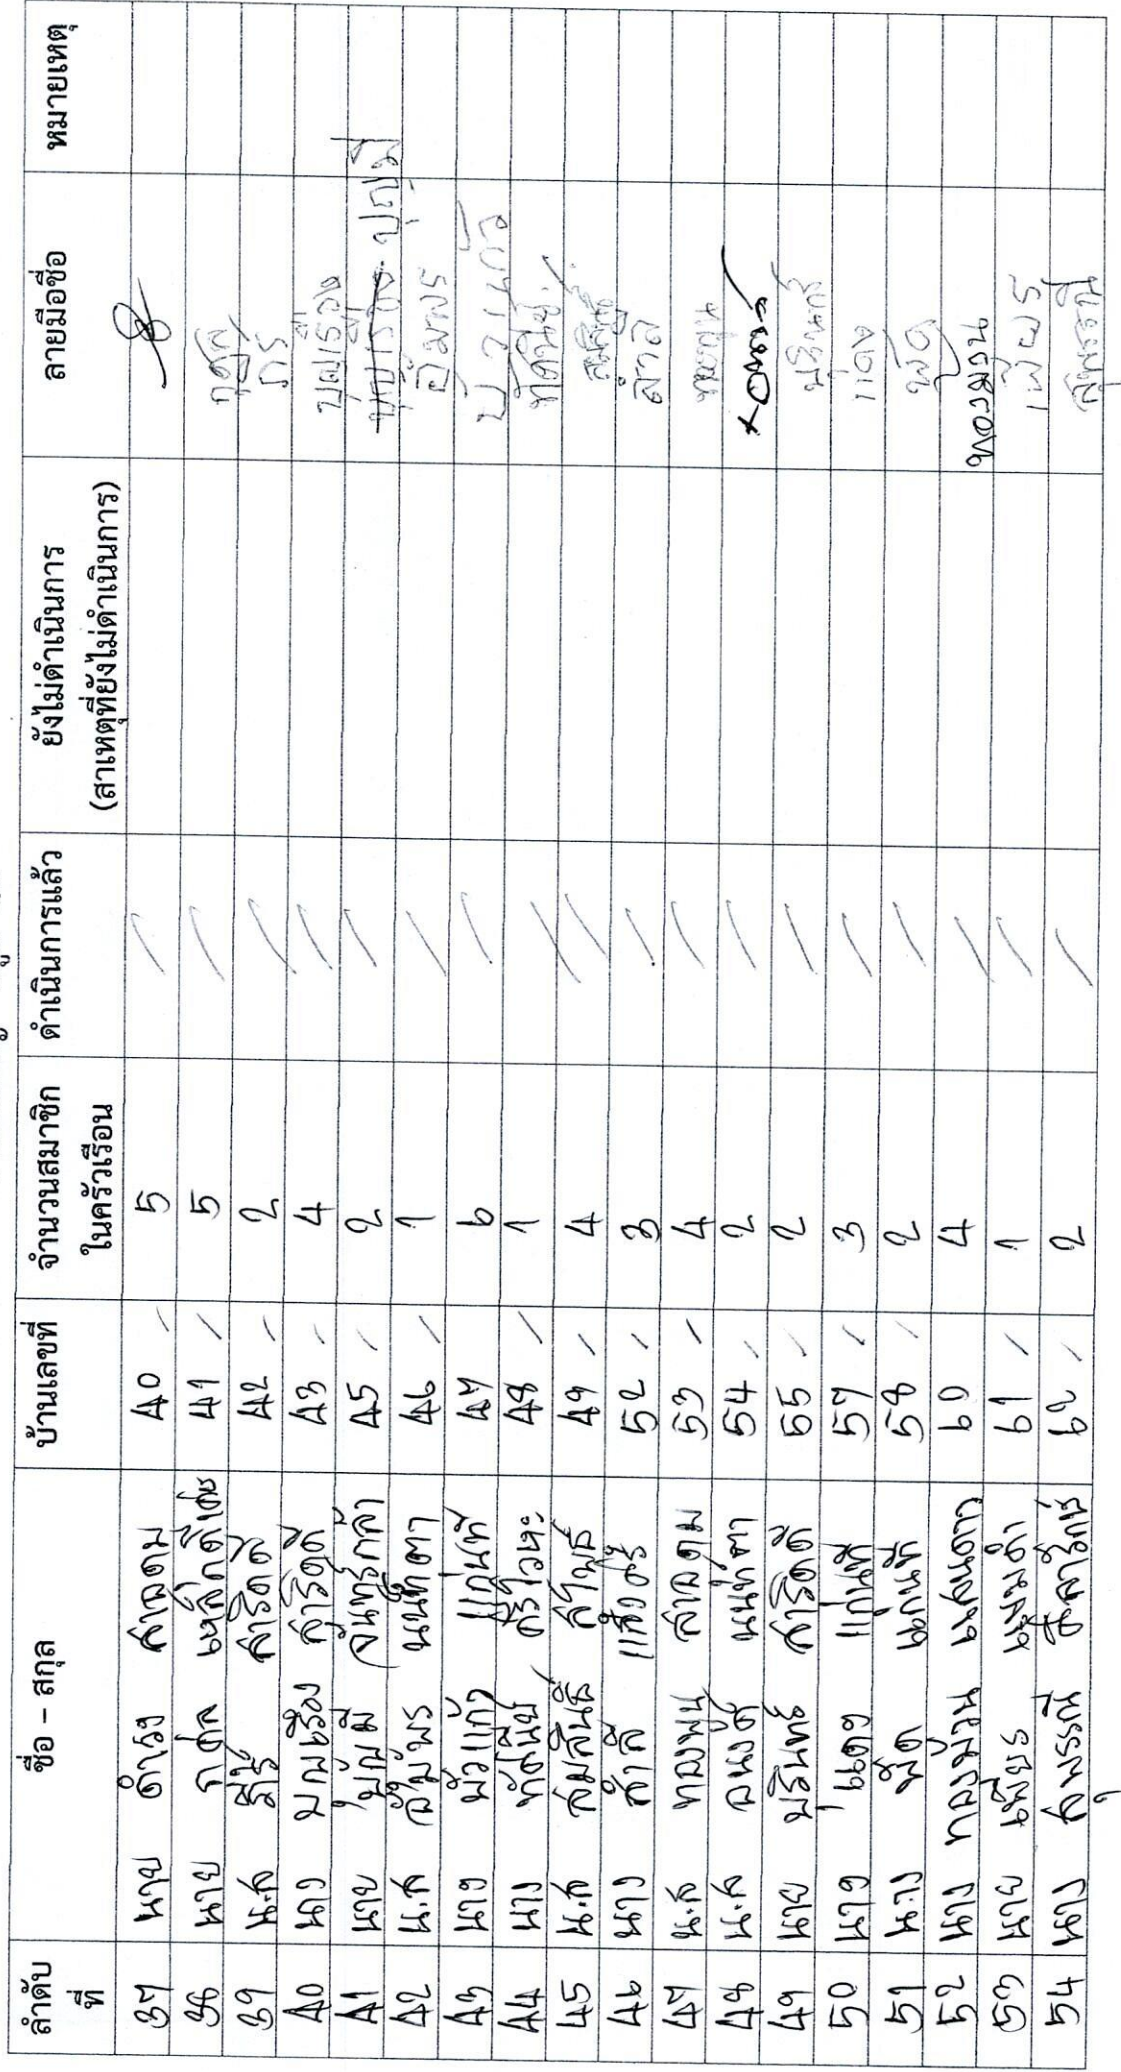 ลำดับที่ ชื่อ – สกุล บ้านเลขที่ จำนวนสมาชิกในครัวเรือน ดำเนินการแล้ว ยังไม่ดำเนินการ (สาเหตุที่ยังไม่ดำเนินการ) ลายมือชื่อ หมายเหตุ
37 นาย ดำรง สาลดม 40 / 5 /
38 นาย กุศล 41 / 5 / กุศล
39 น.ส สาริดดี 42 / 2 /
40 นาง บุญเรือง สาริดดี 43 / 4 / บุญเรือง
41 นาย บุญมี จันทร์กล้า 45 / 2 / บุญมี
42 น.ส อัมพร นนท์ตา 46 / 1 / อัมพร
43 นาง บัวแก้ว แก่นที 47 6 / บัวแก้ว
44 นาง ทัศนีย์ 48 / 1 / ทัศนีย์
45 น.ส สมสินธ์ 49 / 4 /
46 นาง สำลี แสงศรี 52 / 3 / สำลี
47 น.ส ทองพูน สาลดม 53 / 4 /
48 น.ส อนงค์ นนท์ตา 54 / 2 / อนงค์
49 นาย ปรินทร์ สาริดดี 55 / 2 /
50 นาง แดง แก่นที 57 / 3 / แดง
51 นาง พัด แก่นที 58 / 2 / พัด
52 นาง ทองม้วน 60 4 / ทองมวน
53 นาย เพียร 61 / 1 / เพียร
54 นาง สุพรรณี 62 / 2 /